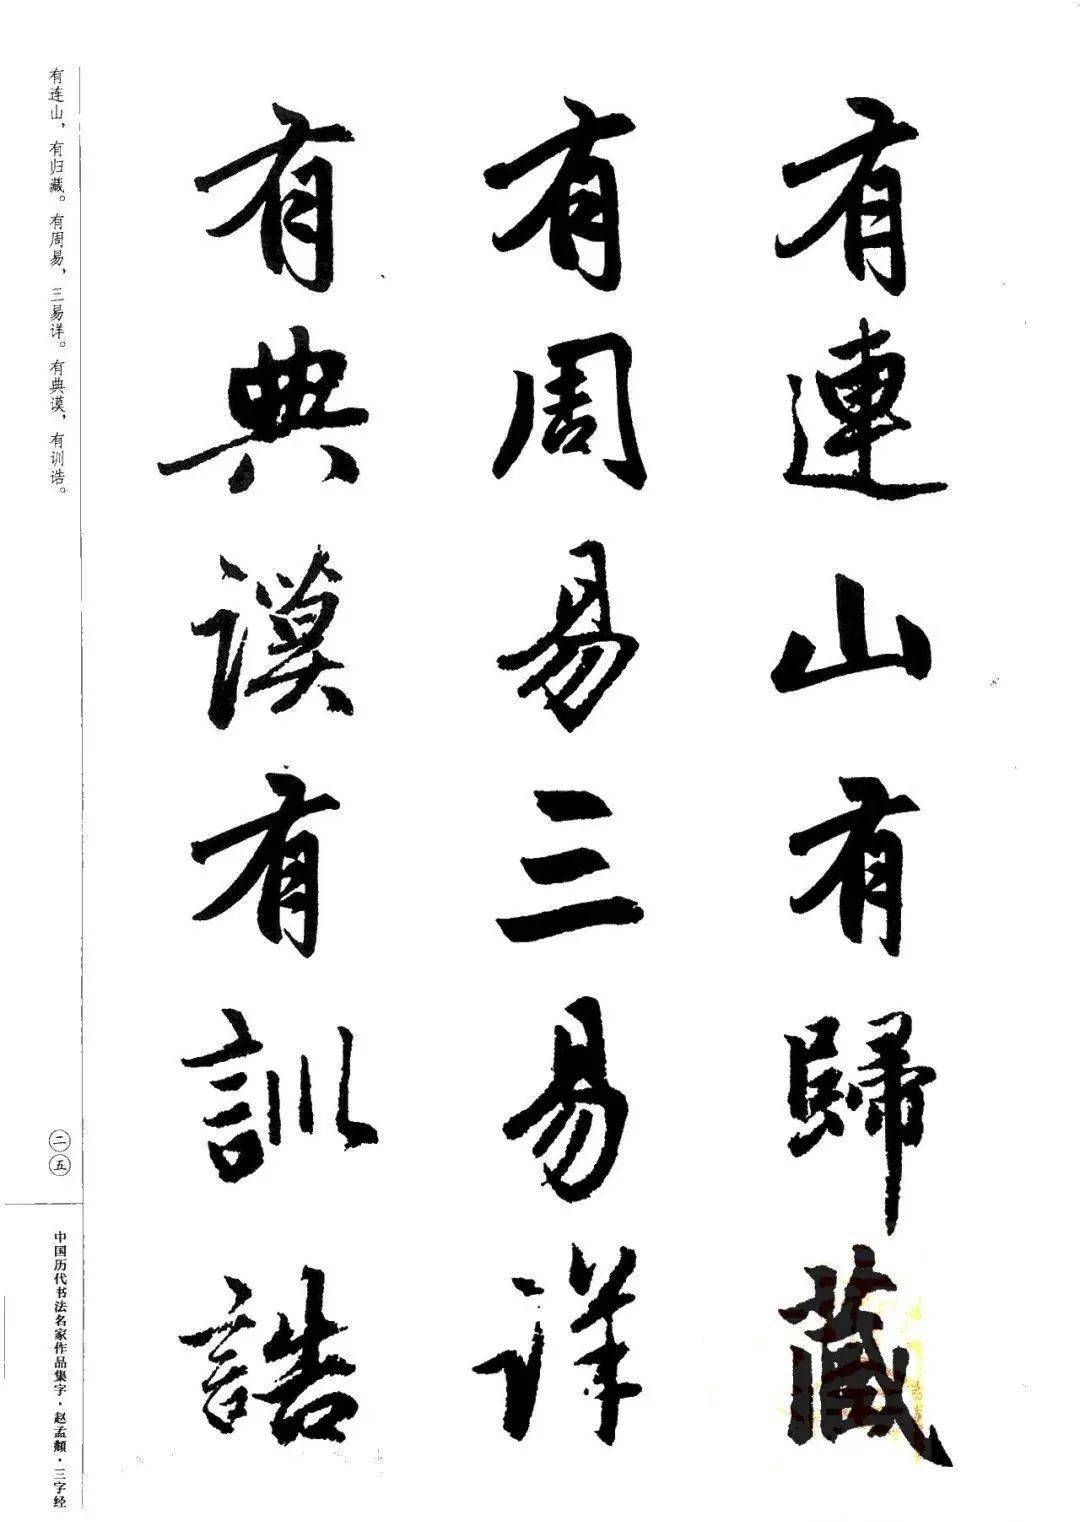 有連山有歸藏
有周易三易详
有典谟有訓誥
有连山，有归藏。有周易，三易详。有典谟，有训诰。
二五
中国历代书法名家作品集字·赵孟頫·三字经